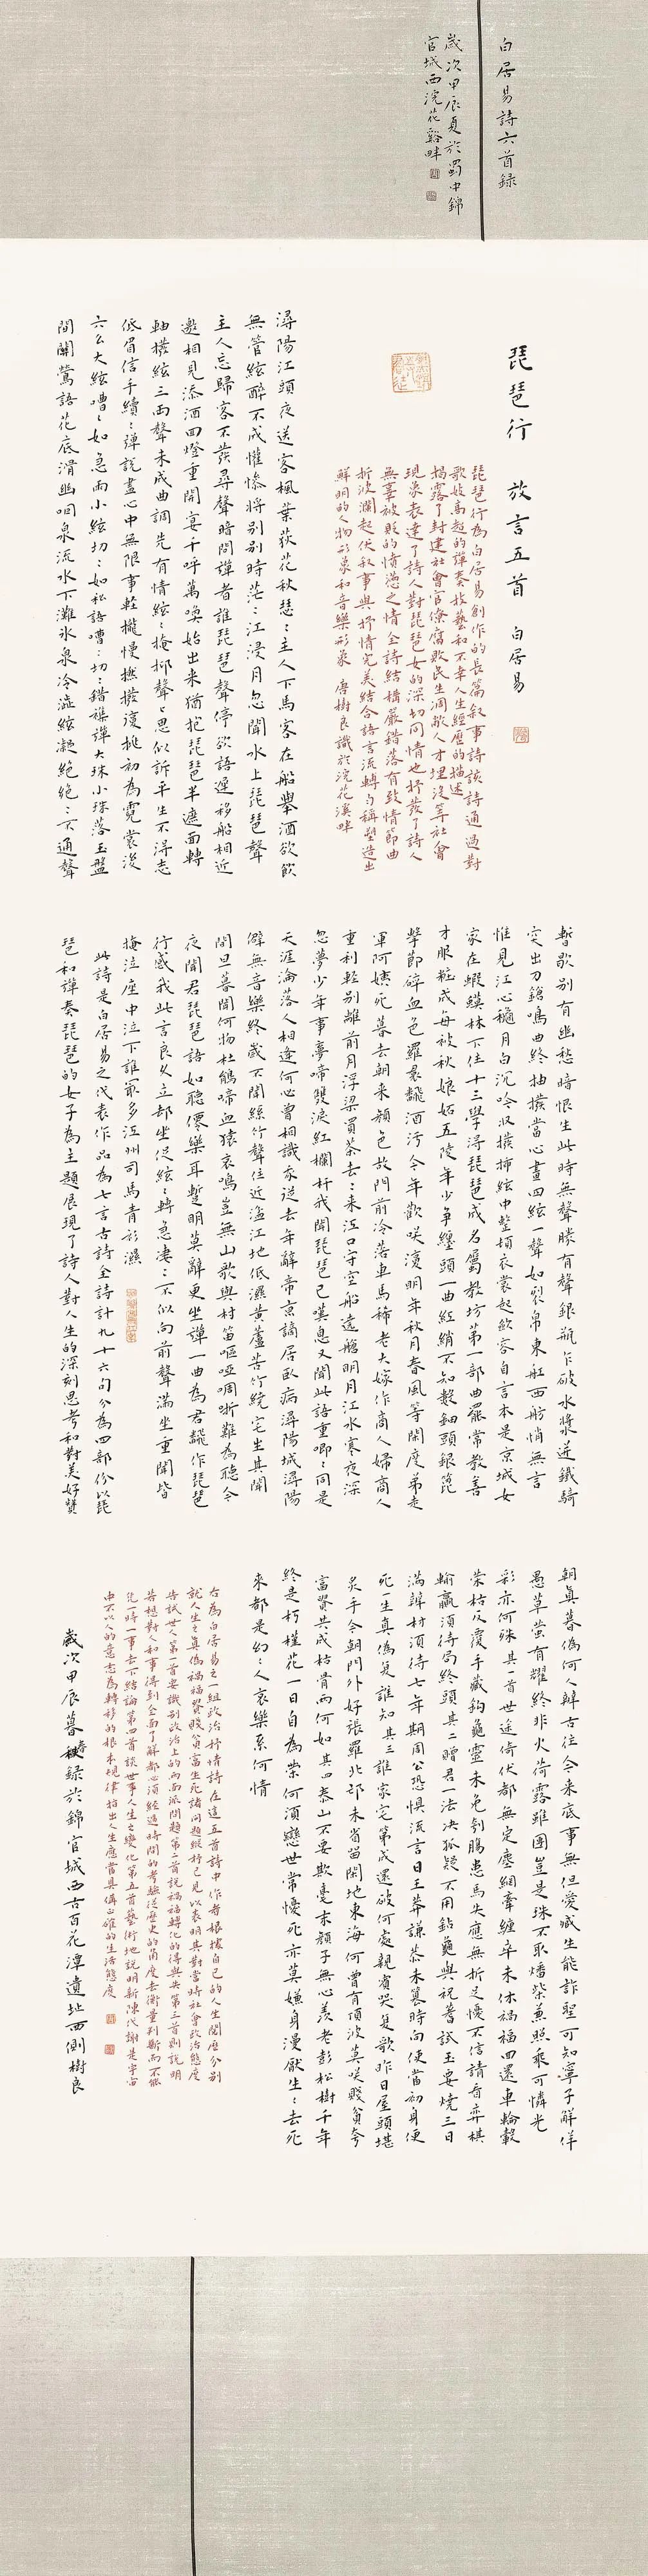 白居易詩六首録
歲次甲辰夏於蜀中錦
官城西浣花谿畔
琵琶行 放言五首 白居易
琵琶行為白居易創作的長篇叙事詩該詩通過對
歌妓高超的彈奏技藝和不幸人生經歷的描述
揭露了封建社會官僚腐敗民生凋敝人才埋没等社會
現象表達了詩人對琵琶女的深切同情也抒發了詩人
無辜被貶的憤懣之情全詩結構嚴錯落有致情節曲
折波瀾起伏叙事與抒情完美結合語言流轉匀稱塑造出
鮮明的人物形象和音樂形象 唐樹良識於浣花溪畔
潯陽江頭夜送客楓葉荻花秋瑟〻主人下馬客在船舉酒欲飲
無管絃醉不成懽慘將别别時茫〻江浸月忽聞水上琵琶聲
主人忘歸客不發尋聲暗問彈者誰琵琶聲停欲語遲移船相近
邀相見添酒回燈重開宴千呼萬喚始出来猶抱琵琶半遮面轉
軸撥絃三兩聲未成曲調先有情絃〻掩抑聲〻思似訴平生不得志
低眉信手續〻彈説盡心中無限事輕攏慢撚撥復挑初為霓裳後
六幺大絃嘈〻如急雨小絃切〻如私語嘈〻切〻錯襍彈大珠小珠落玉盤
間關鶯語花底滑幽咽泉流水下灘氷泉冷澁絃凝絶絶〻不通聲
暫歇别有幽愁暗恨生此時無聲勝有聲銀瓶乍破水漿迸鐵騎
突出刀鎗鳴曲終抽撥當心畫四絃一聲如裂帛東舡西舫悄無言
惟見江心穐月白沉吟収撥插絃中整頓衣裳起歛容自言本是京城女
家在蝦蟆林下住十三學得琵琶成名屬教坊第一部曲罷常教善
才服粧成每被秋娘妬五陵年少争纏頭一曲紅綃不知數鈿頭銀篦
擊節碎血色羅裙飜酒污今年歡咲復明年秋月春風等閑度弟走
軍阿姨死暮去朝来顔色故門前冷落車馬稀老大嫁作商人婦商人
重利輕别離前月浮梁買茶去〻来江口守空船遶艙明月江水寒夜深
忽夢少年事夢啼雙淚紅欄杆我聞琵琶已嘆息又聞此語重唧〻同是
天涯淪落人相逢何必曾相識我從去年辭帝京謫居臥病潯陽城潯陽
僻無音樂終歲不聞絲竹聲住近湓江地低濕黄蘆苦竹繞宅生其間
間旦暮聞何物杜鵑啼血猿哀鳴豈無山歌與村笛嘔啞啁哳難為聽今
夜聞君琵琶語如聽僊樂耳蹔明莫辭更坐彈一曲為君飜作琵琶
行感我此言良久立却坐促絃〻轉急凄〻不似向前聲滿坐重聞皆
掩泣座中泣下誰最多江州司馬青衫濕
此詩是白居易之代表作品為七言古詩全詩計九十六句分為四部份以琵
琶和彈奏琵琶的女子為主題展現了詩人對人生的深刻思考和對美好贊
朝真暮偽何人辨古往今来底事無但愛臧生能詐聖可知甯子解佯
愚草螢有耀終非火荷露雖團豈是珠不取燔柴兼照乘可憐光
彩亦何殊其一首世途倚伏都無定塵網牽纏卒未休禍福回還車輪轂
榮枯反覆手藏鈎龜靈未免刳腸患馬失應無折足憂不信請看弈棋
輸贏須待局終頭其二贈君一法决狐疑不用鉆龜與祝蓍試玉要燒三日
滿辨材須待七年期周公恐懼流言日王莽謙恭未篡時向使當初身便
死一生真偽復誰知其三誰家宅第成還破何處親賓哭復歌昨日屋頭堪
炙手今朝門外好張羅北邙未省留閑地東海何曾有頂波莫咲賤貧夸
富貴共成枯骨兩何如其四泰山不要欺毫末顔子無心羨老彭松樹千年
終是朽槿花一日自為榮何須戀世常憂死亦莫嫌身漫厭生〻去死
來都是幻〻人哀樂系何情
右為白居易之一組政治抒情詩在這五首詩中作者根據自己的人生閲歷分别
就人生之真偽禍福貴賤貧富生死諸問題縱抒己見以表明其對當時社會政治態度
告誡世人第一首要識别政治上的兩面派問題第二首説禍福轉化的得與失第三首則説明
若想對人和事得到全面了解都必須經過時間的考驗從歷史的角度去衡量判斷而不能
凭一時一事去下結論第四首談世事人生之變化第五首藝術地説明新陳代謝是宇宙
中不以人的意志為轉移的根本規律指出人生應當具備正確的生活態度
歲次甲辰暮春録於錦官城西古百花潭遺址西側樹良